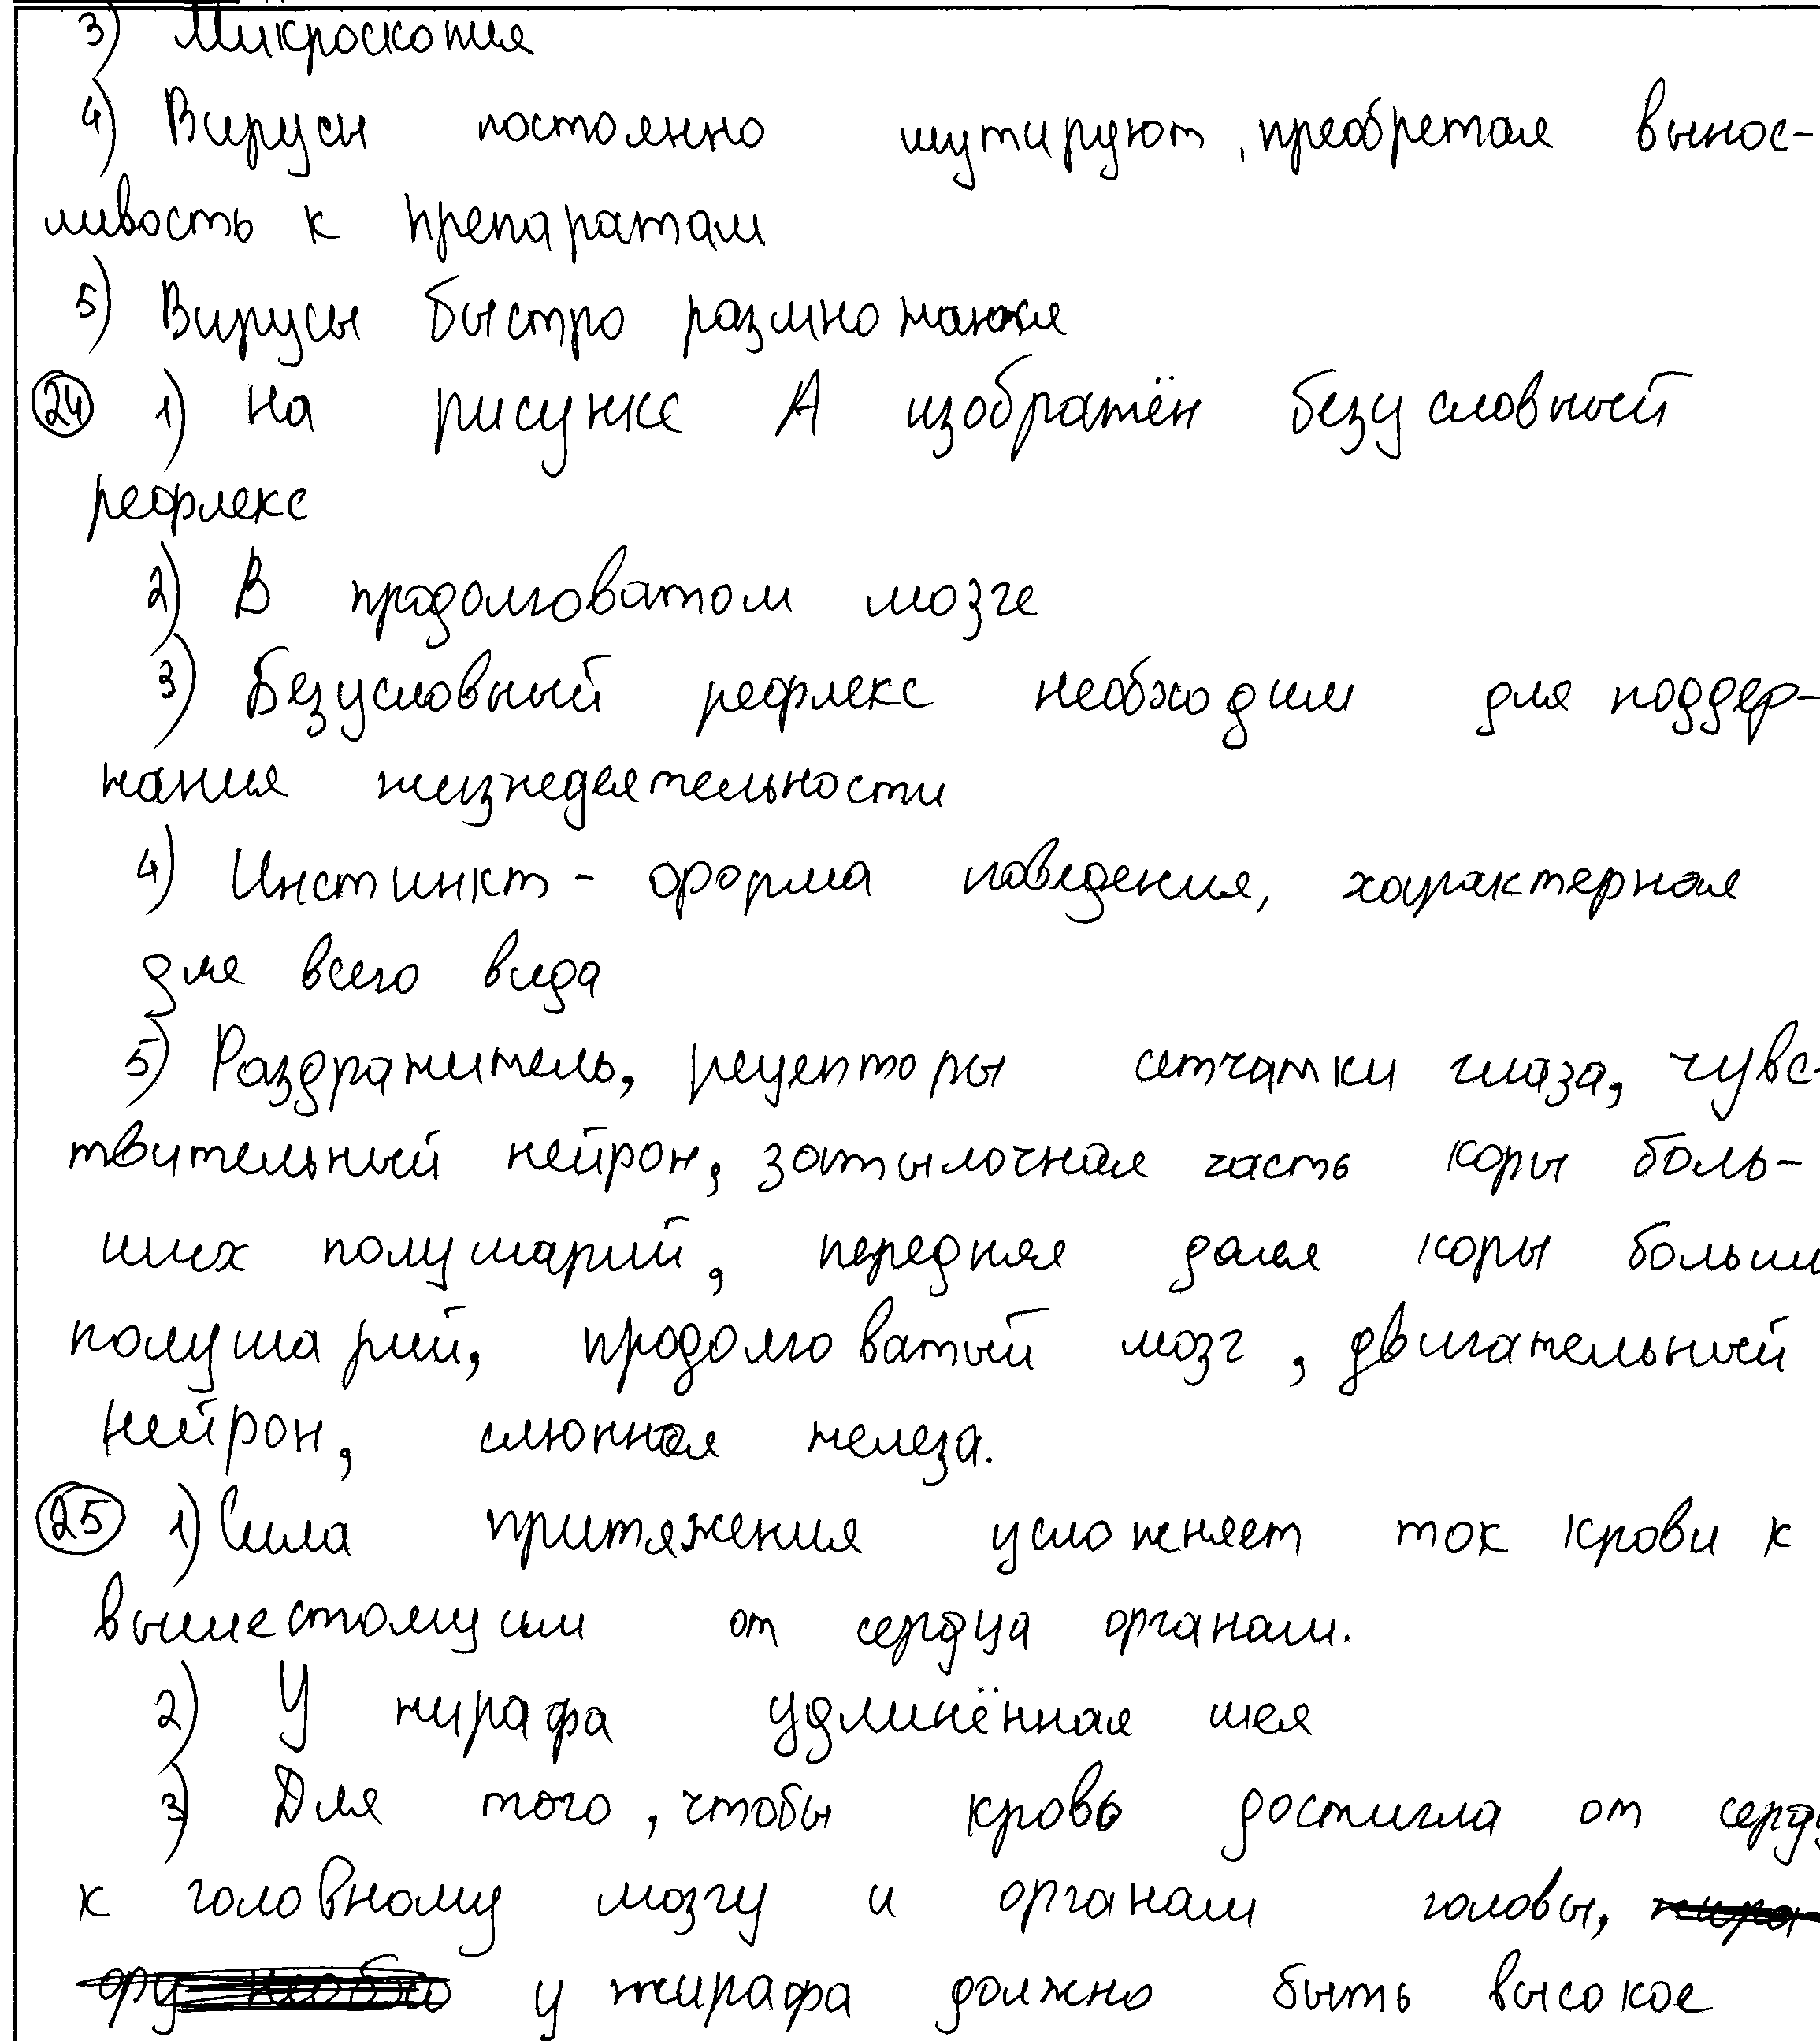 3) Микроскопия
4) Вирусы постоянно мутируют, преобретая вынос-
ливость к препаратам
5) Вирусы быстро размножаются
24 1) На рисунке А изображён безусловный
рефлекс
2) В продолговатом мозге
3) Безусловный рефлекс необходим для поддер-
жания жизнедеятельности
4) Инстинкт - форма поведения, характерная
для всего вида
5) Раздражитель, рецепторы сетчатки глаза, чувс-
твительный нейрон, затылочная часть коры боль-
ших полушарий, передняя доля коры больши
полушарий, продолговатый мозг, двигательный
нейрон, слюнная железа.
25 1) Сила притяжения усложняет ток крови к
вышестоящим от сердца органам.
2) У жирафа удлинённая шея
3) Для того, чтобы кровь достигла от серд
к головному мозгу и органам головы,
у жирафа должно быть высокое